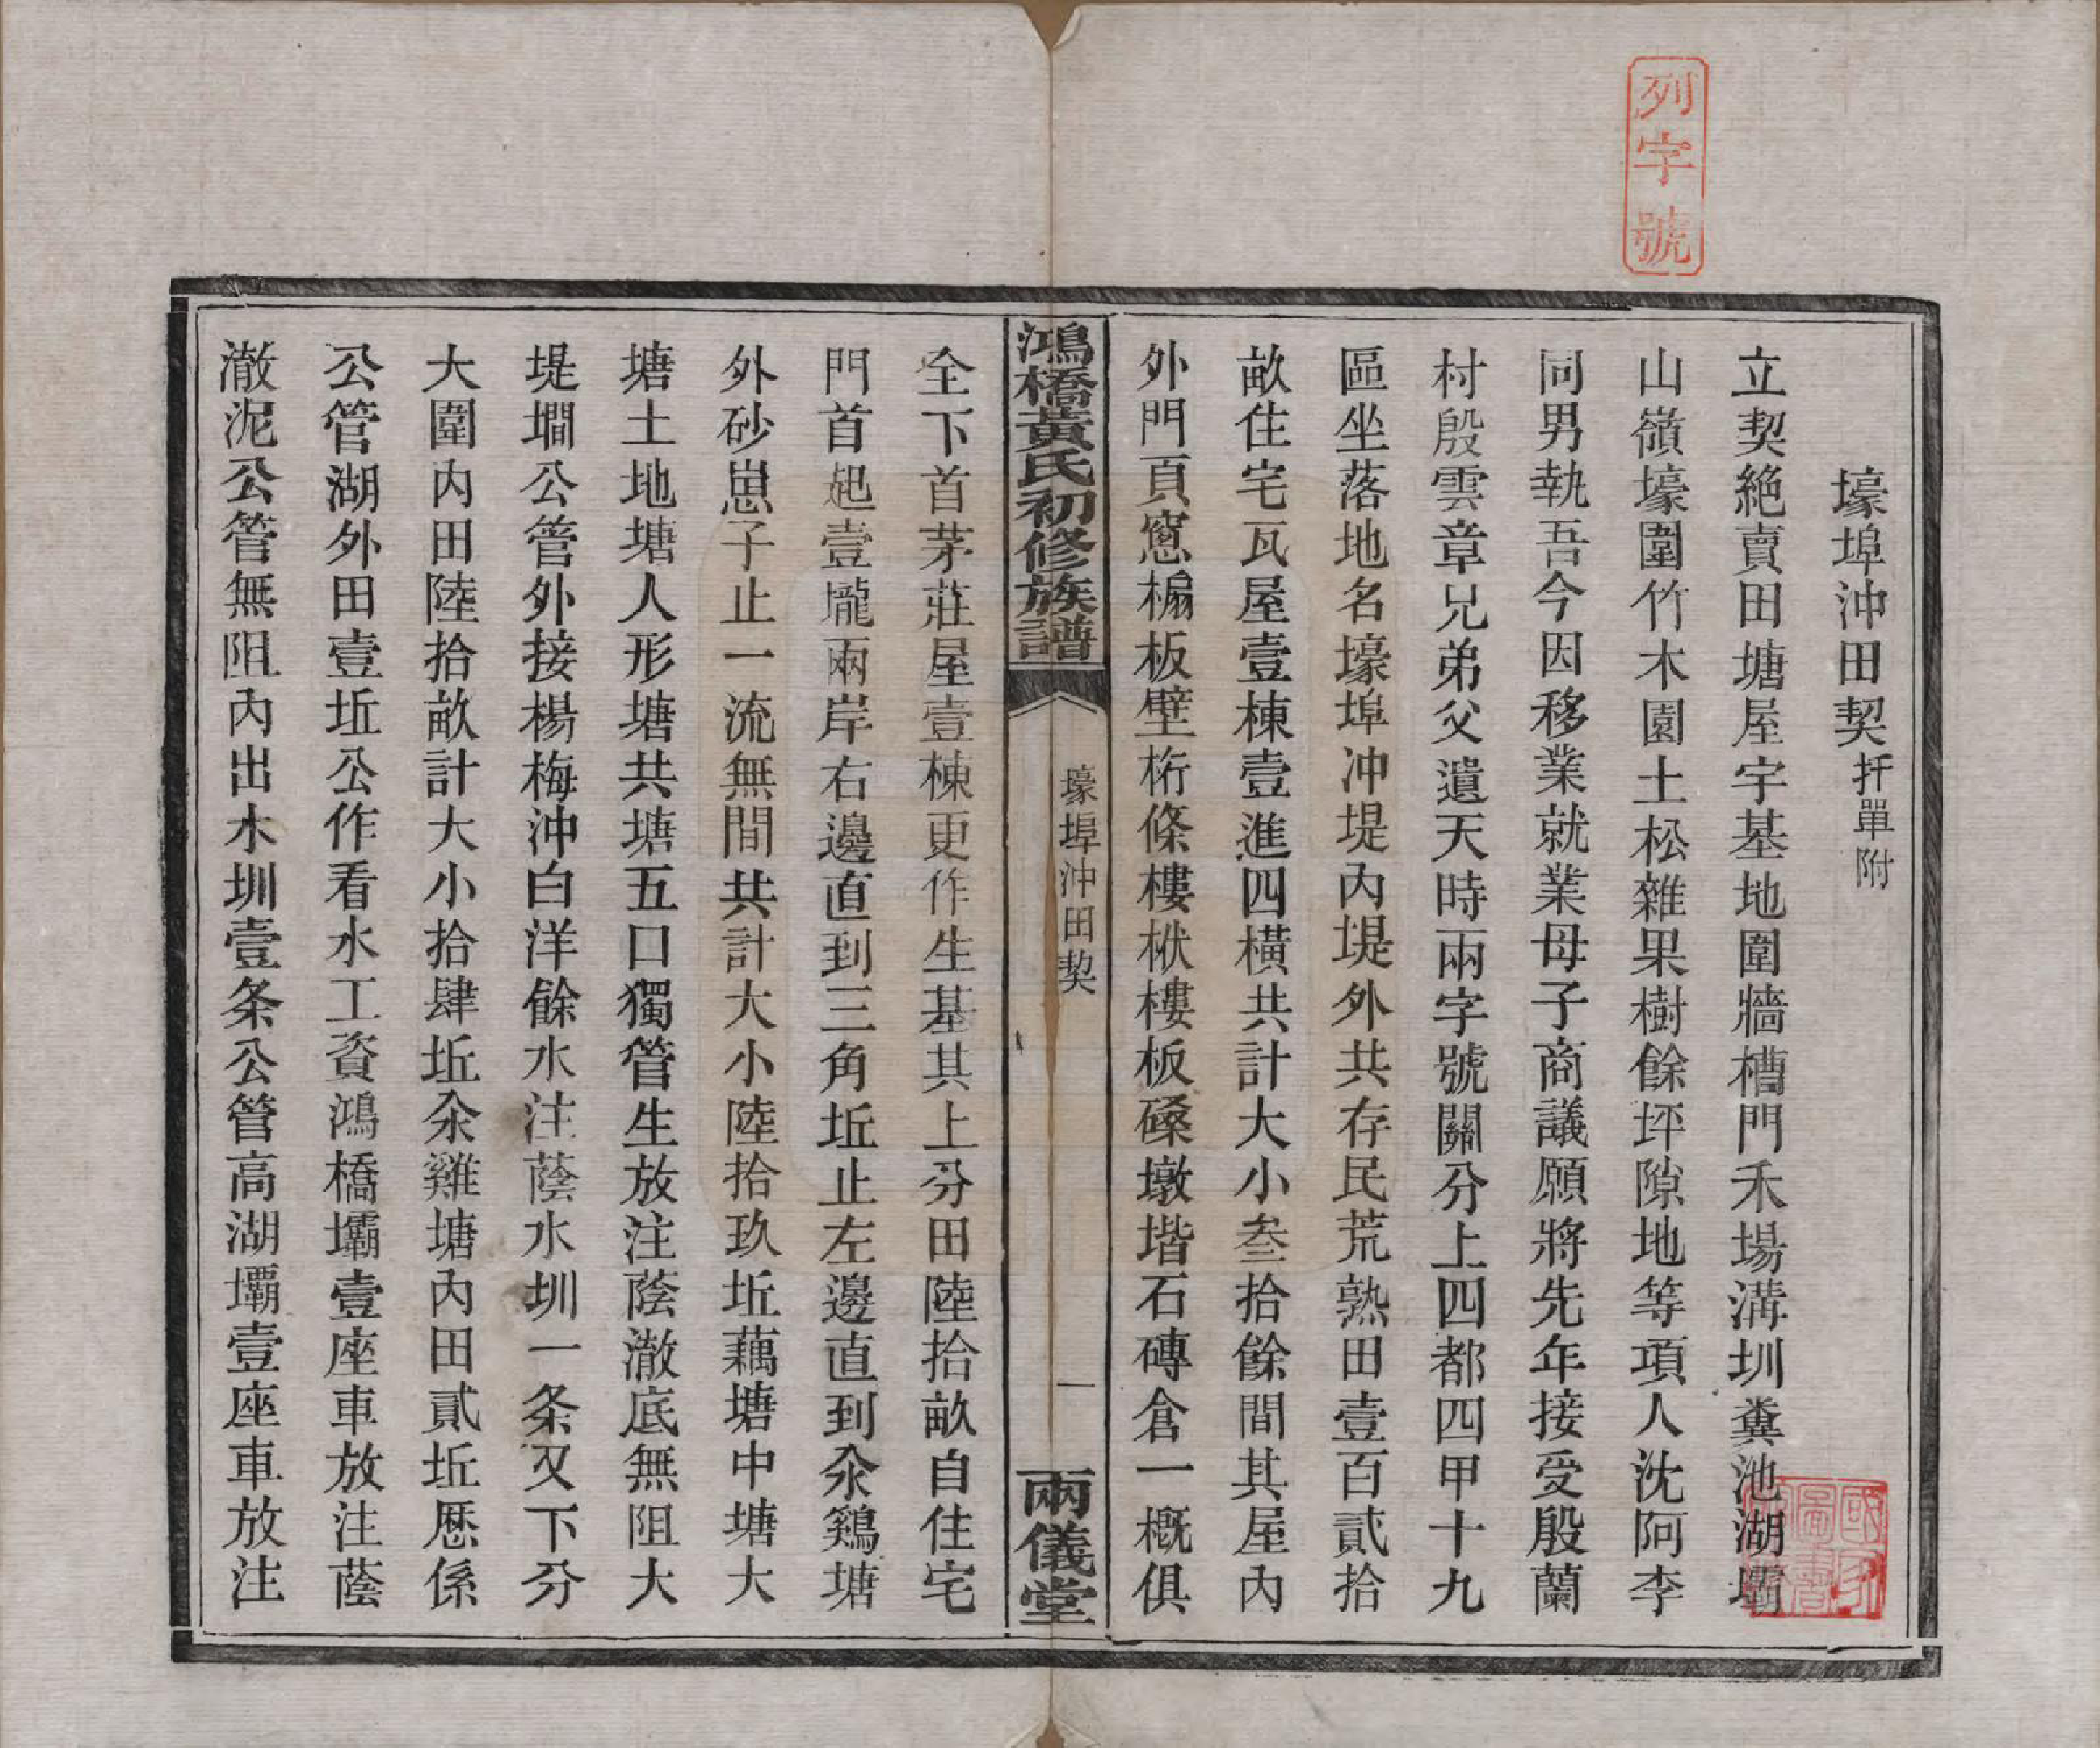 列字號
壕埠沖田契扦單附
立契絕賣田塘屋宇基地圍牆槽門禾場溝圳糞池湖壩
山嶺壕圍竹木園土松雜果樹餘坪隙地等項人沈阿李
同男執吾今因移業就業母子商議願將先年接受殷蘭
村殷雲章兄弟父遺天時兩字號關分上四都四甲十九
區坐落地名壕埠沖堤內堤外共存民荒熟田壹百貳拾
畝住宅瓦屋壹棟壹進四橫共計大小叁拾餘間其屋內
外門頁窻槅板壁桁條樓栿樓板磉墩堦石磚倉一概俱
鴻橋黃氏初修族譜
壕埠沖田契
一
兩儀堂
全下首茅莊屋壹棟更作生基其上分田陸拾畝自住宅
門首起壹壠兩岸右邊直到三角坵止左邊直到氽鷄塘
外砂崽子止一流無間共計大小陸拾玖坵藕塘中塘大
塘土地塘人形塘共塘五口獨管生放注蔭澈底無阻大
堤墹公管外接楊梅沖白洋餘水注蔭水圳一条又下分
大圍內田陸拾畝計大小拾肆坵氽雞塘內田貳坵歷係
公管湖外田壹坵公作看水工資鴻橋壩壹座車放注蔭
澈泥公管無阻內出水圳壹条公管高湖壩壹座車放注